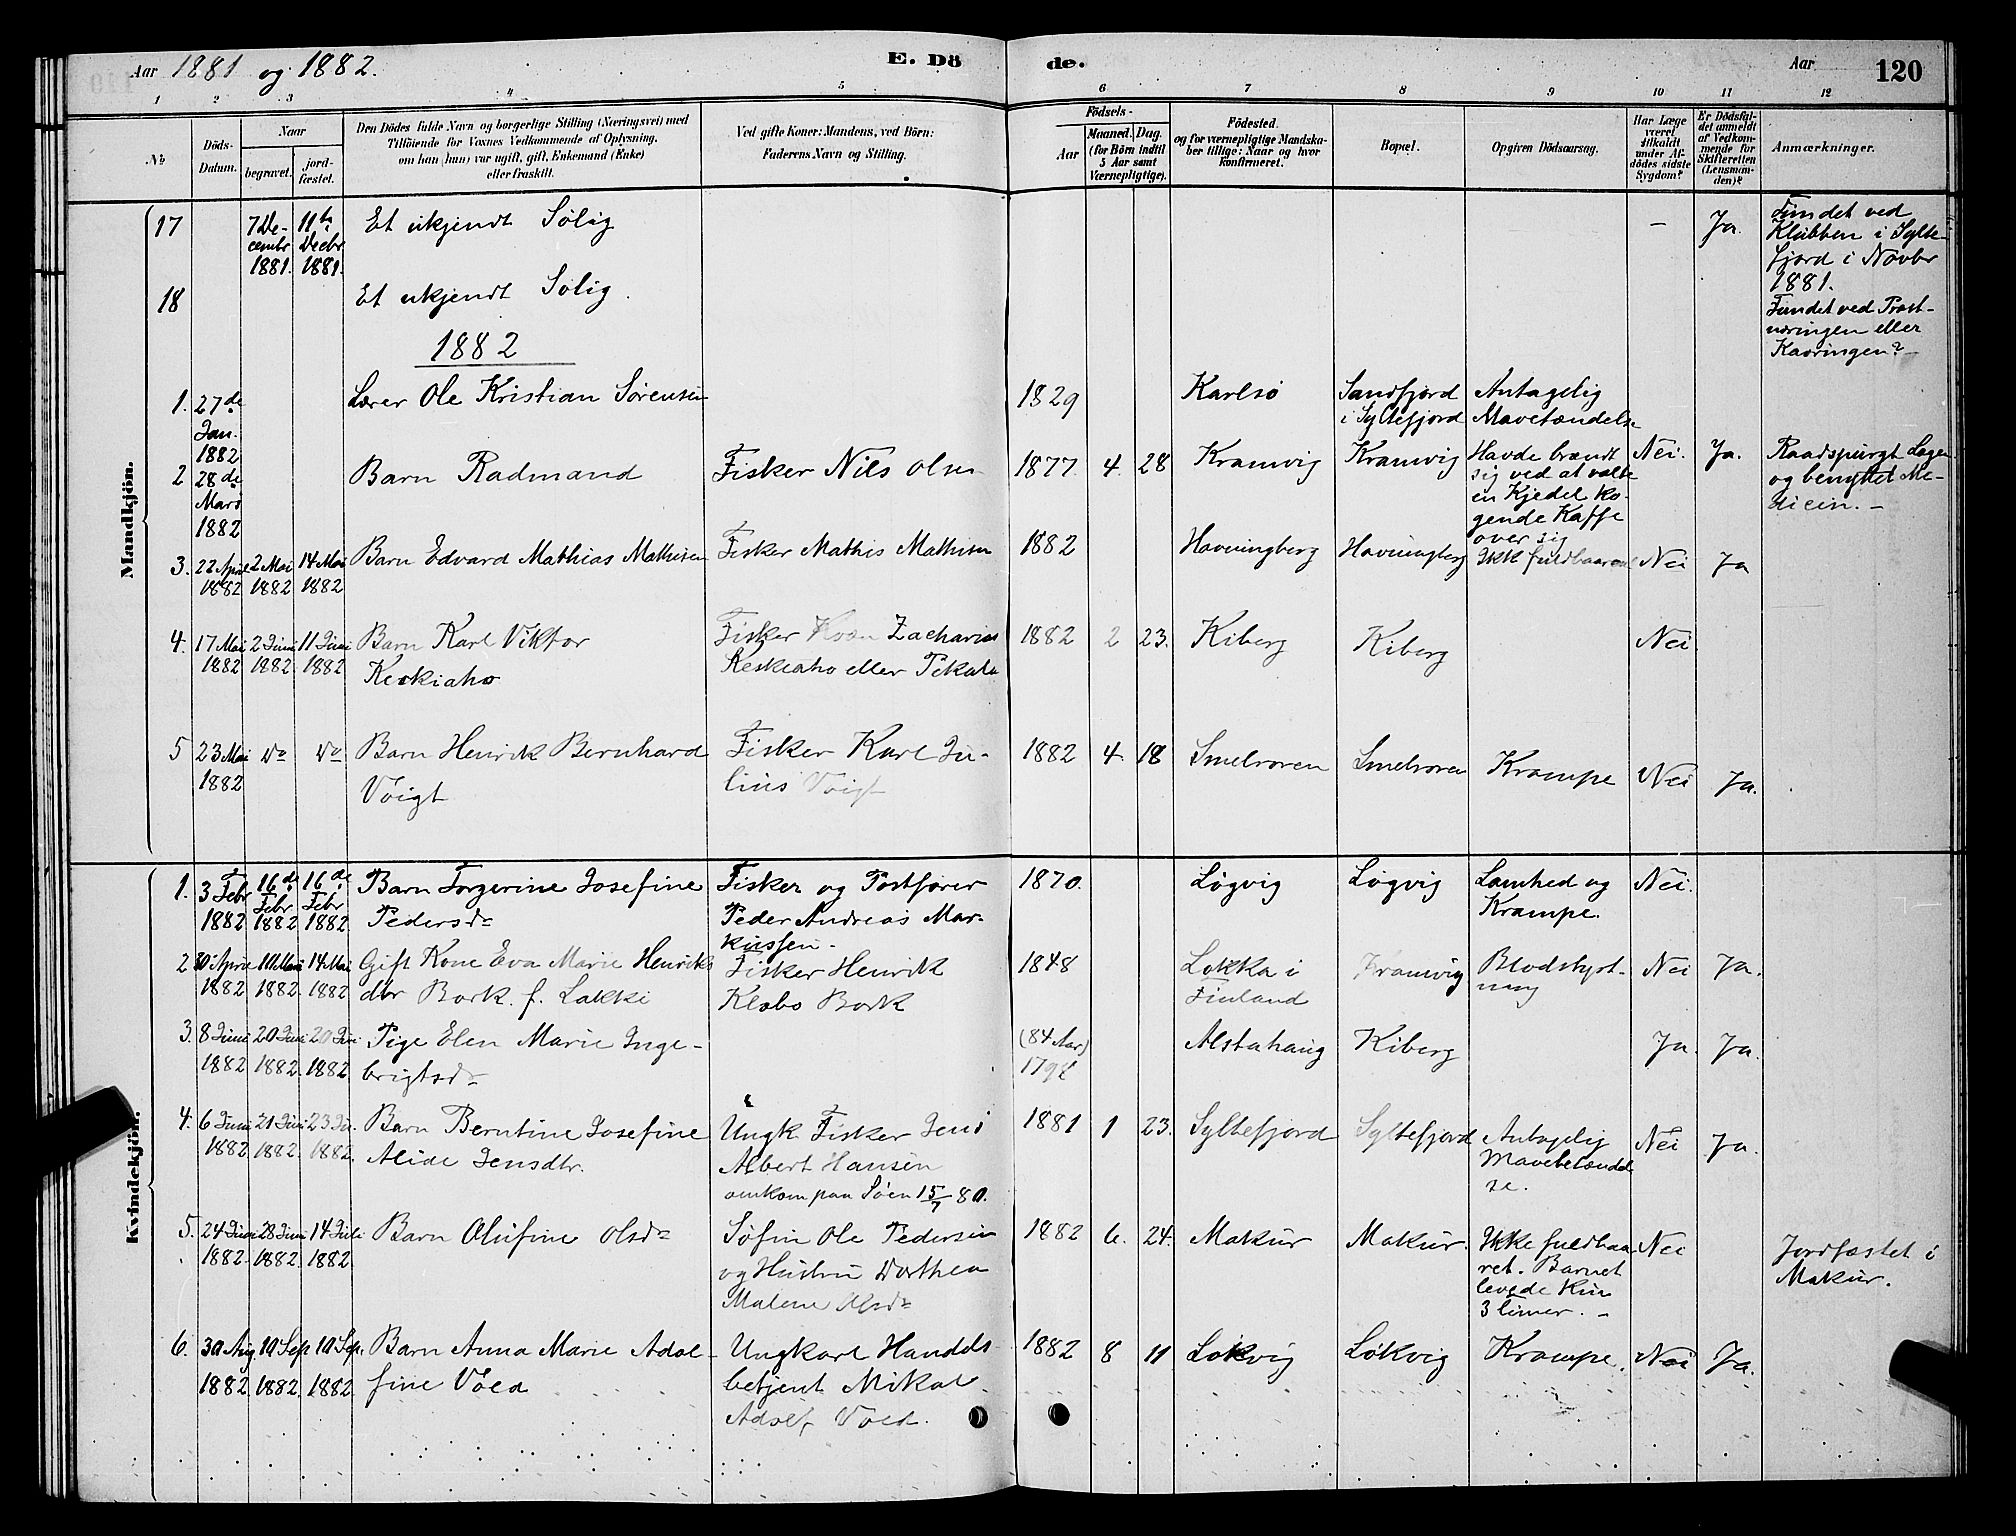 Aar 1881 og 1882.
E. Dö de.
Aar
120
1 2 3 4 5 6 7 8 9 10 11 12
№
Döds-Datum.
Naar
begravet.
jord-fæstet.
Den Dödes fulde Navn og borgerlige Stilling (Næringsvei) med
Tilföiende for Voxnes Vedkommende af Oplysning,
om han (hun) var ugift, gift, Enkemand (Enke)
eller fraskilt.
Ved gifte Koner: Mandens, ved Börn:
Faderens Navn og Stilling.
Födsels-
Aar
Maaned.
Dag.
(for Börn indtil
5 Aar samt
Værnepligtige).
Födested.
og for værnepligtige Mandska-
ber tillige: Naar og hvor
konfirmeret.
Bopæl.
Opgiven Dödsaarsag.
Har Læge
været
tilkaldt
under Af-
dödes sidste
Sygdom?
Er Dödsfal-
det anmeldt
af Vedkom-
mende for
Skifteretten
(Lensman-
den)?
Anmærkninger.
Mandkjön.
17
7 De-
cembr
1881.
11te
Decbr
1881.
Et ukjendt Sölig
–
Ja.
Fundet ved
Klubben i Sylte-
fjord i Novbr
1881.
18
Et ukjendt Sölig.
Fundet ved Præst-
næringen eller
Kavringen? –
1882
1.
27de
Jan.
1882
Lærer Ole Kristian Sörensen
1829
Karlsö
Sandfjord
i Syltefjord
Antagelig
Mavetændelse
2
28de
Mars
1882
Barn Radmand
Fisker Nils Olsen
1877.
4.
28
Kramvig
Kramvig
Havde brændt
sig ved at vælte
en Kjedel ko-
gende Kaffe
over sig
Nei.
Ja.
Raadspurgt Læge
og benyttet Me-
dicin. –
3.
22 April
1882
2 Mai
1882
14 Mai
1882
Barn Edvard Mathias Mathisen
Fisker Mathis Mathisen
1882
Havningberg
Havningberg
Ikke fuldbaaren
Nei
Ja
4.
17 Mai
1882
2 Juni
1882
11 Juni
1882
Barn Karl Viktor
Keskiaho
Fisker Kvæn Zacharias
Keskiaho eller Pekala
1882
2
23.
Kiberg
Kiberg
Nei
5
23 Mai
1882
Do
Do
Barn Henrik Bernhard
Voigt
Fisker Karl Ju-
lius Voigt
1882
4
18
Smelroren
Smelroren
Krampe
Nei
Ja.
Kvindekjön.
1.
3 Febr
1882
16de
Febr
1882
16de
Febr
1882
Barn Torgerine Josefine
Pedersdr
Fisker og Postförer
Peder Andreas Mar-
kussen.
1870.
Lögvig
Lögvig
Lamhed og
Krampe.
Nei.
2
30 April
1882
10 Mai
1882.
14 Mai
1882
Gift Kone Eva Marie Henriks
dtr Bork. f. Lakki
Fisker Henrik
Klabo Bork
1848
Lokka i
Finland
Kramvig
Blodstyrt-
ning
Nei
Ja.
3.
8 Juni
1882
20 Juni
1882.
20 Juni
1882
Pige Elen Marie Inge-
brigtsdr
(84 Aar)
1798
Alstahaug
Kiberg
Ja.
Ja.
4.
6 Juni
1882
21 Juni
1882.
23 Ju.
1882.
Barn Berntine Josefine
Alide Jensdtr.
Ungk. Fisker Jens
Albert Hansen
omkom paa Söen 15/7 80.
1881
1
23.
Syltefjord
Syltefjord
Antagelig
Mavebetændel
se.
Nei
Ja.
5.
24 Juni
1882
28 Juni
1882
14 Juli
1882
Barn Olufine Olsdr
Söfin Ole Pedersen
og Hustru Dorthea
Malene Olsdr
1882
6.
24.
Makur
Makur.
Ikke fuldbaa
ret. Barnet
levede kun
3 timer. –
Nei
Jordfæstet i
Makur.
6.
30 Aug.
1882
10 Sep
1882.
10 Sep.
1882
Barn Anna Marie Adol-
fine Vold
Ungkarl Handels-
betjent Mikal
Adolf Vold.
1882
8
11
Lökvig
Lökvig
Krampe.
Nei
Ja.